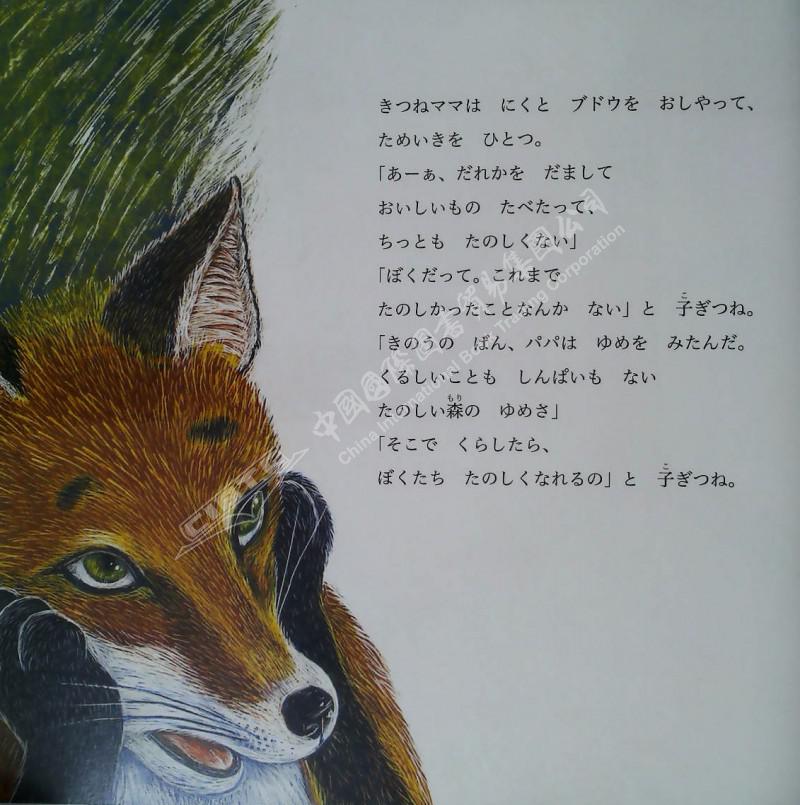 きつねママは　にくと　ブドウを　おしやって、
ためいきを　ひとつ。
「あーぁ、だれかを　だまして
おいしいもの　たべたって、
ちっとも　たのしくない」
「ぼくだって。これまで
たのしかったことなんか　ない」と　子ぎつね。
「きのうの　ばん、パパは　ゆめを　みたんだ。
くるしいことも　しんぱいも　ない
たのしい森の　ゆめさ」
「そこで　くらしたら、
ぼくたち　たのしくなれるの」と　子ぎつね。
中國國際圖書貿易集团公司
China International Book Trading Corporation